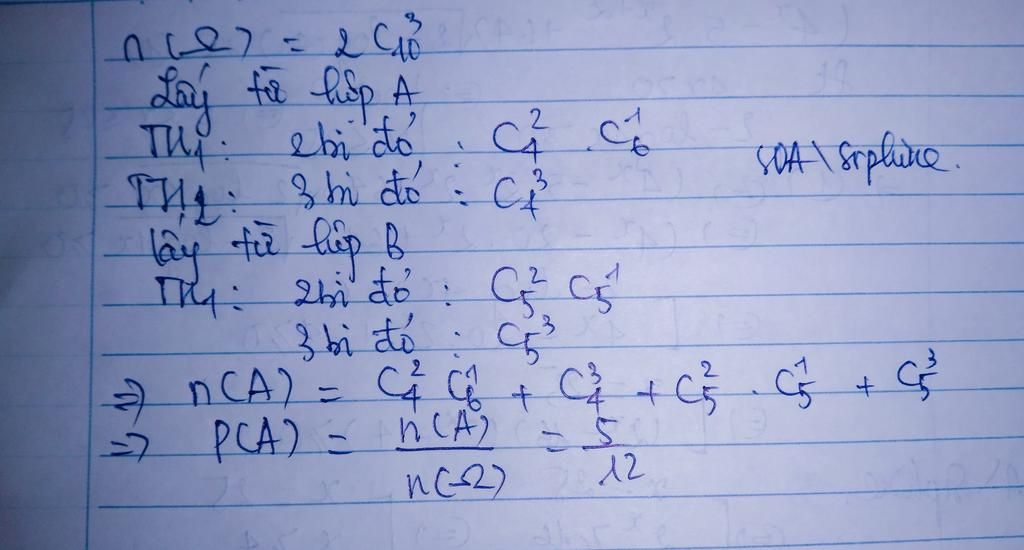 n(Ω) = 2 C₁₀³
Lấy từ hộp A
TH₁: 2 bi đỏ : C₄² . C₆¹
SOA\Srphine.
TH2: 3 bi đỏ : C₄³
lấy từ hộp B
TH₁: 2 bi đỏ : C₅² C₅¹
3 bi đỏ : C₅³
=> n(A) = C₄² C₆¹ + C₄³ + C₅² . C₅¹ + C₅³
=> P(A) = n(A)/n(Ω) = 5/12